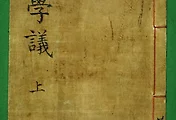 學議 上